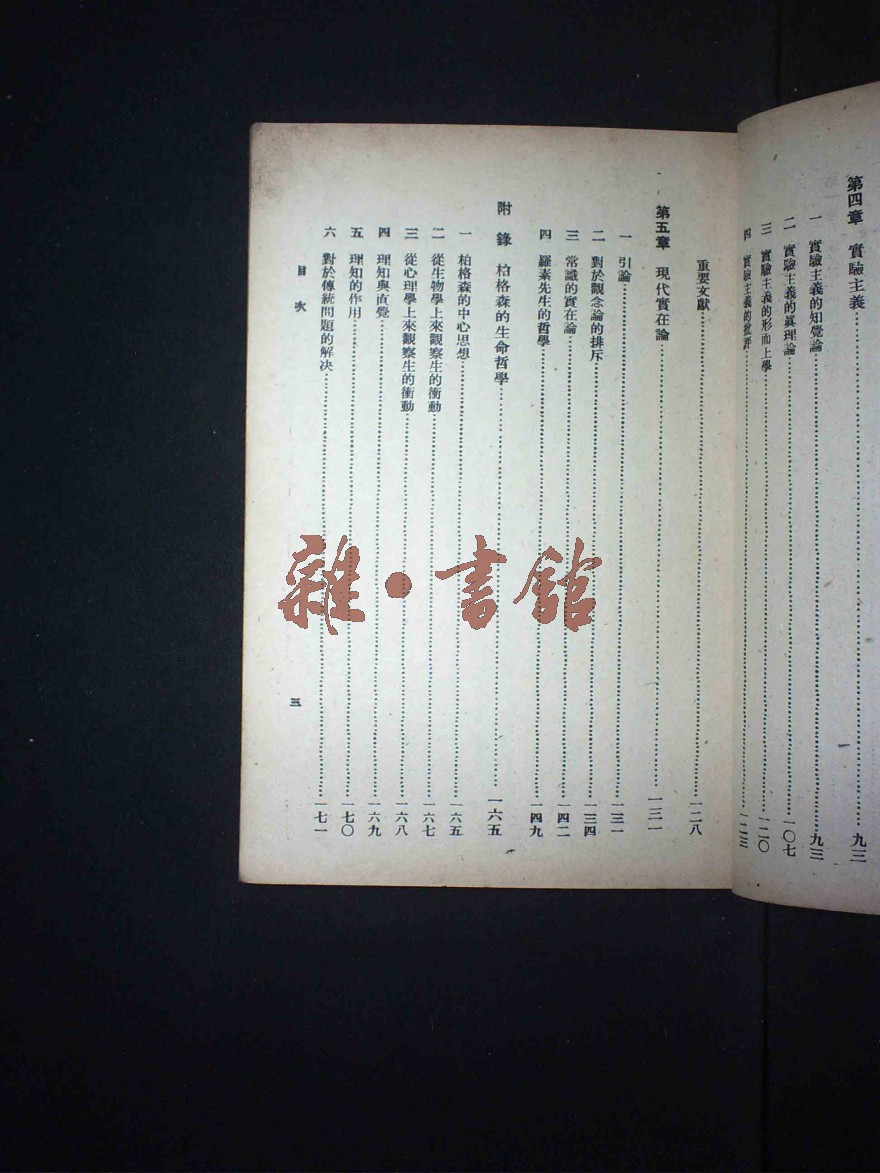 第四章 實驗主義……九三
一 實驗主義的知覺論……九三
二 實驗主義的眞理論……一〇七
三 實驗主義的形而上學……一二〇
四 實驗主義的批評……一二三
重要文獻……一二八
第五章 現代實在論……一三一
一 引論……一三一
二 對於觀念論的排斥……一三四
三 常識的實在論……一四二
四 羅素先生的哲學……一四九
附錄 柏格森的生命哲學……一六五
一 柏格森的中心思想……一六五
二 從生物學上來觀察生的衝動……一六七
三 從心理學上來觀察生的衝動……一六八
四 理知與直覺……一六九
五 理知的作用……一七〇
六 對於傳統問題的解决……一七一
目次
三
雜·書館